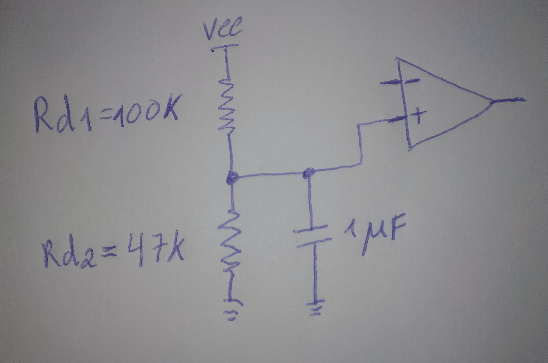 Vcc
Rd1=100K
- +
Rd2=47k
1μF